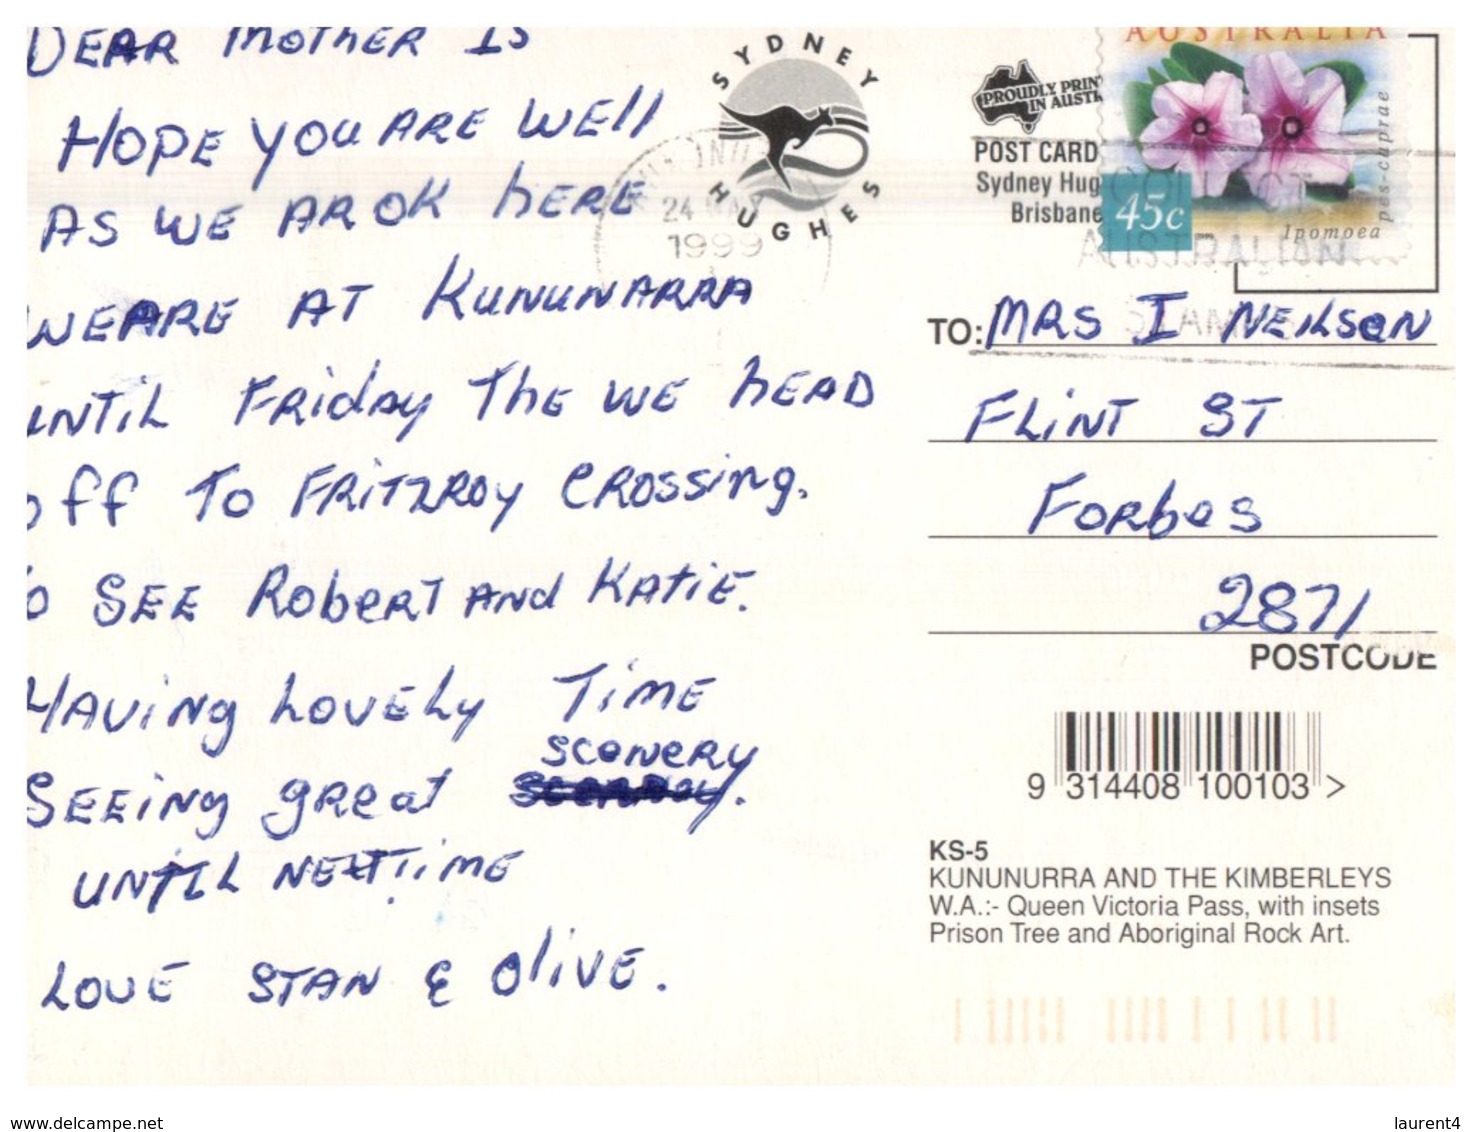 DEAR MOTHER IS
HOPE YOU ARE WEll
AS WE AR OK HERE
WEARE AT KUNUNARRA
UNTIL FRIDAY THE WE HEAD
off TO FRITZROY CROSSING.
SEE ROBERT AND KATIE.
HAVING LOVELY TIME
SCENERY
SEEING GREAT
UNTIL NEXTTIME
LOVE STAN & OliVE.
SYDNEY
HUGHES
24 MAY
1999
PROUDLY PRIN
IN AUSTR
POST CARD
Sydney Hug
Brisbane
AUSTRALIA
45c
Ipomoea
pes-caprae
COLLECT
AUSTRALIAN
STAMPS
TO: MRS I NEILSON
FLINT ST
FORBES
2871
POSTCODE
9 314408 100103 >
KS-5
KUNUNURRA AND THE KIMBERLEYS
W.A.:- Queen Victoria Pass, with insets
Prison Tree and Aboriginal Rock Art.
www.delcampe.net
laurent4